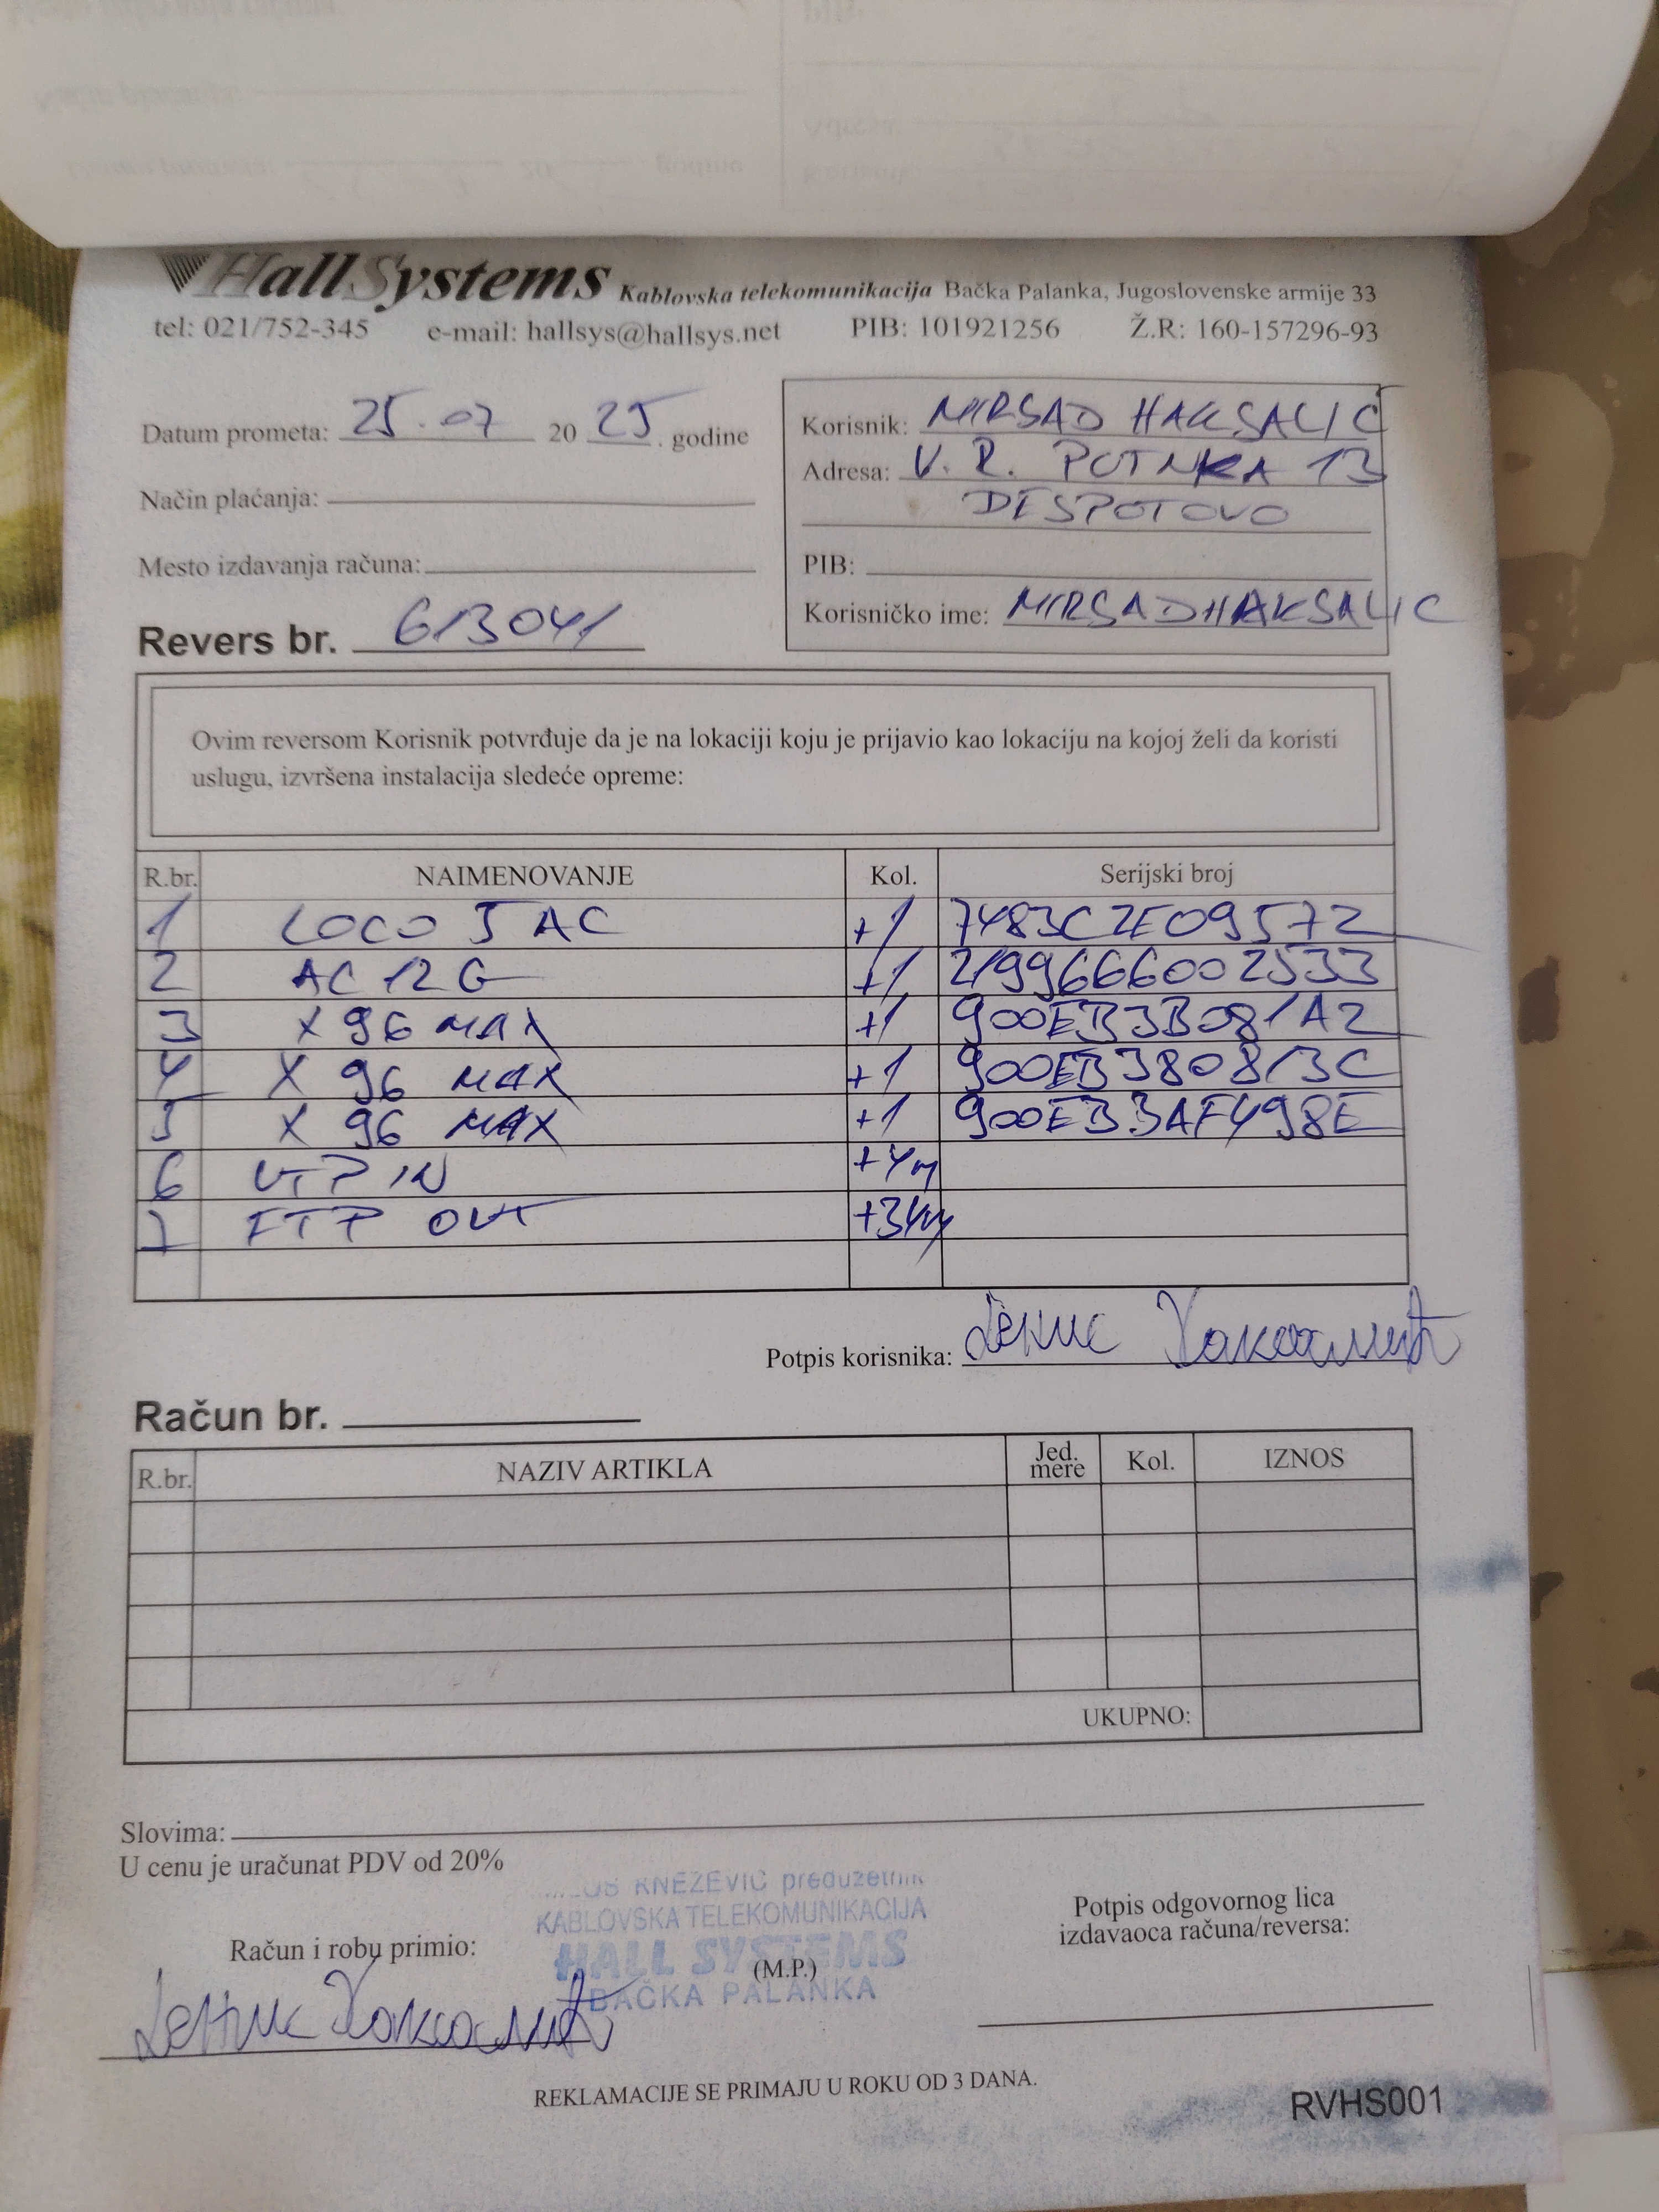 HallSystems Kablovska telekomunikacija Bačka Palanka, Jugoslovenske armije 33
tel: 021/752-345 e-mail: hallsys@hallsys.net PIB: 101921256 Ž.R: 160-157296-93
Datum prometa: 25.07 2025. godine
Način plaćanja:
Mesto izdavanja računa:
Revers br. 613041
Korisnik: MIRSAD HAKSALIC
Adresa: V. R. POTNKA 13
DESPOTOVO
PIB:
Korisničko ime: MIRSADHAKSALIC
Ovim reversom Korisnik potvrđuje da je na lokaciji koju je prijavio kao lokaciju na kojoj želi da koristi
uslugu, izvršena instalacija sledeće opreme:
R.br. NAIMENOVANJE Kol. Serijski broj
1 LOCO 5 AC +1 7483C2E09572
2 AC 12 G +1 2199666002533
3 X 96 MAX +1 900EB3B081A2
4 X 96 MAX +1 900EB380813C
5 X 96 MAX +1 900EB3AF498E
6 UTP IN +4m
7 FTP OUT +34m
Potpis korisnika:
Račun br.
R.br. NAZIV ARTIKLA Jed. mere Kol. IZNOS
UKUPNO:
Slovima:
U cenu je uračunat PDV od 20%
KNEŽEVIĆ preduzetnik
KABLOVSKA TELEKOMUNIKACIJA
HALL SYSTEMS
BAČKA PALANKA
Račun i robu primio:
(M.P.)
Potpis odgovornog lica
izdavaoca računa/reversa:
REKLAMACIJE SE PRIMAJU U ROKU OD 3 DANA.
RVHS001